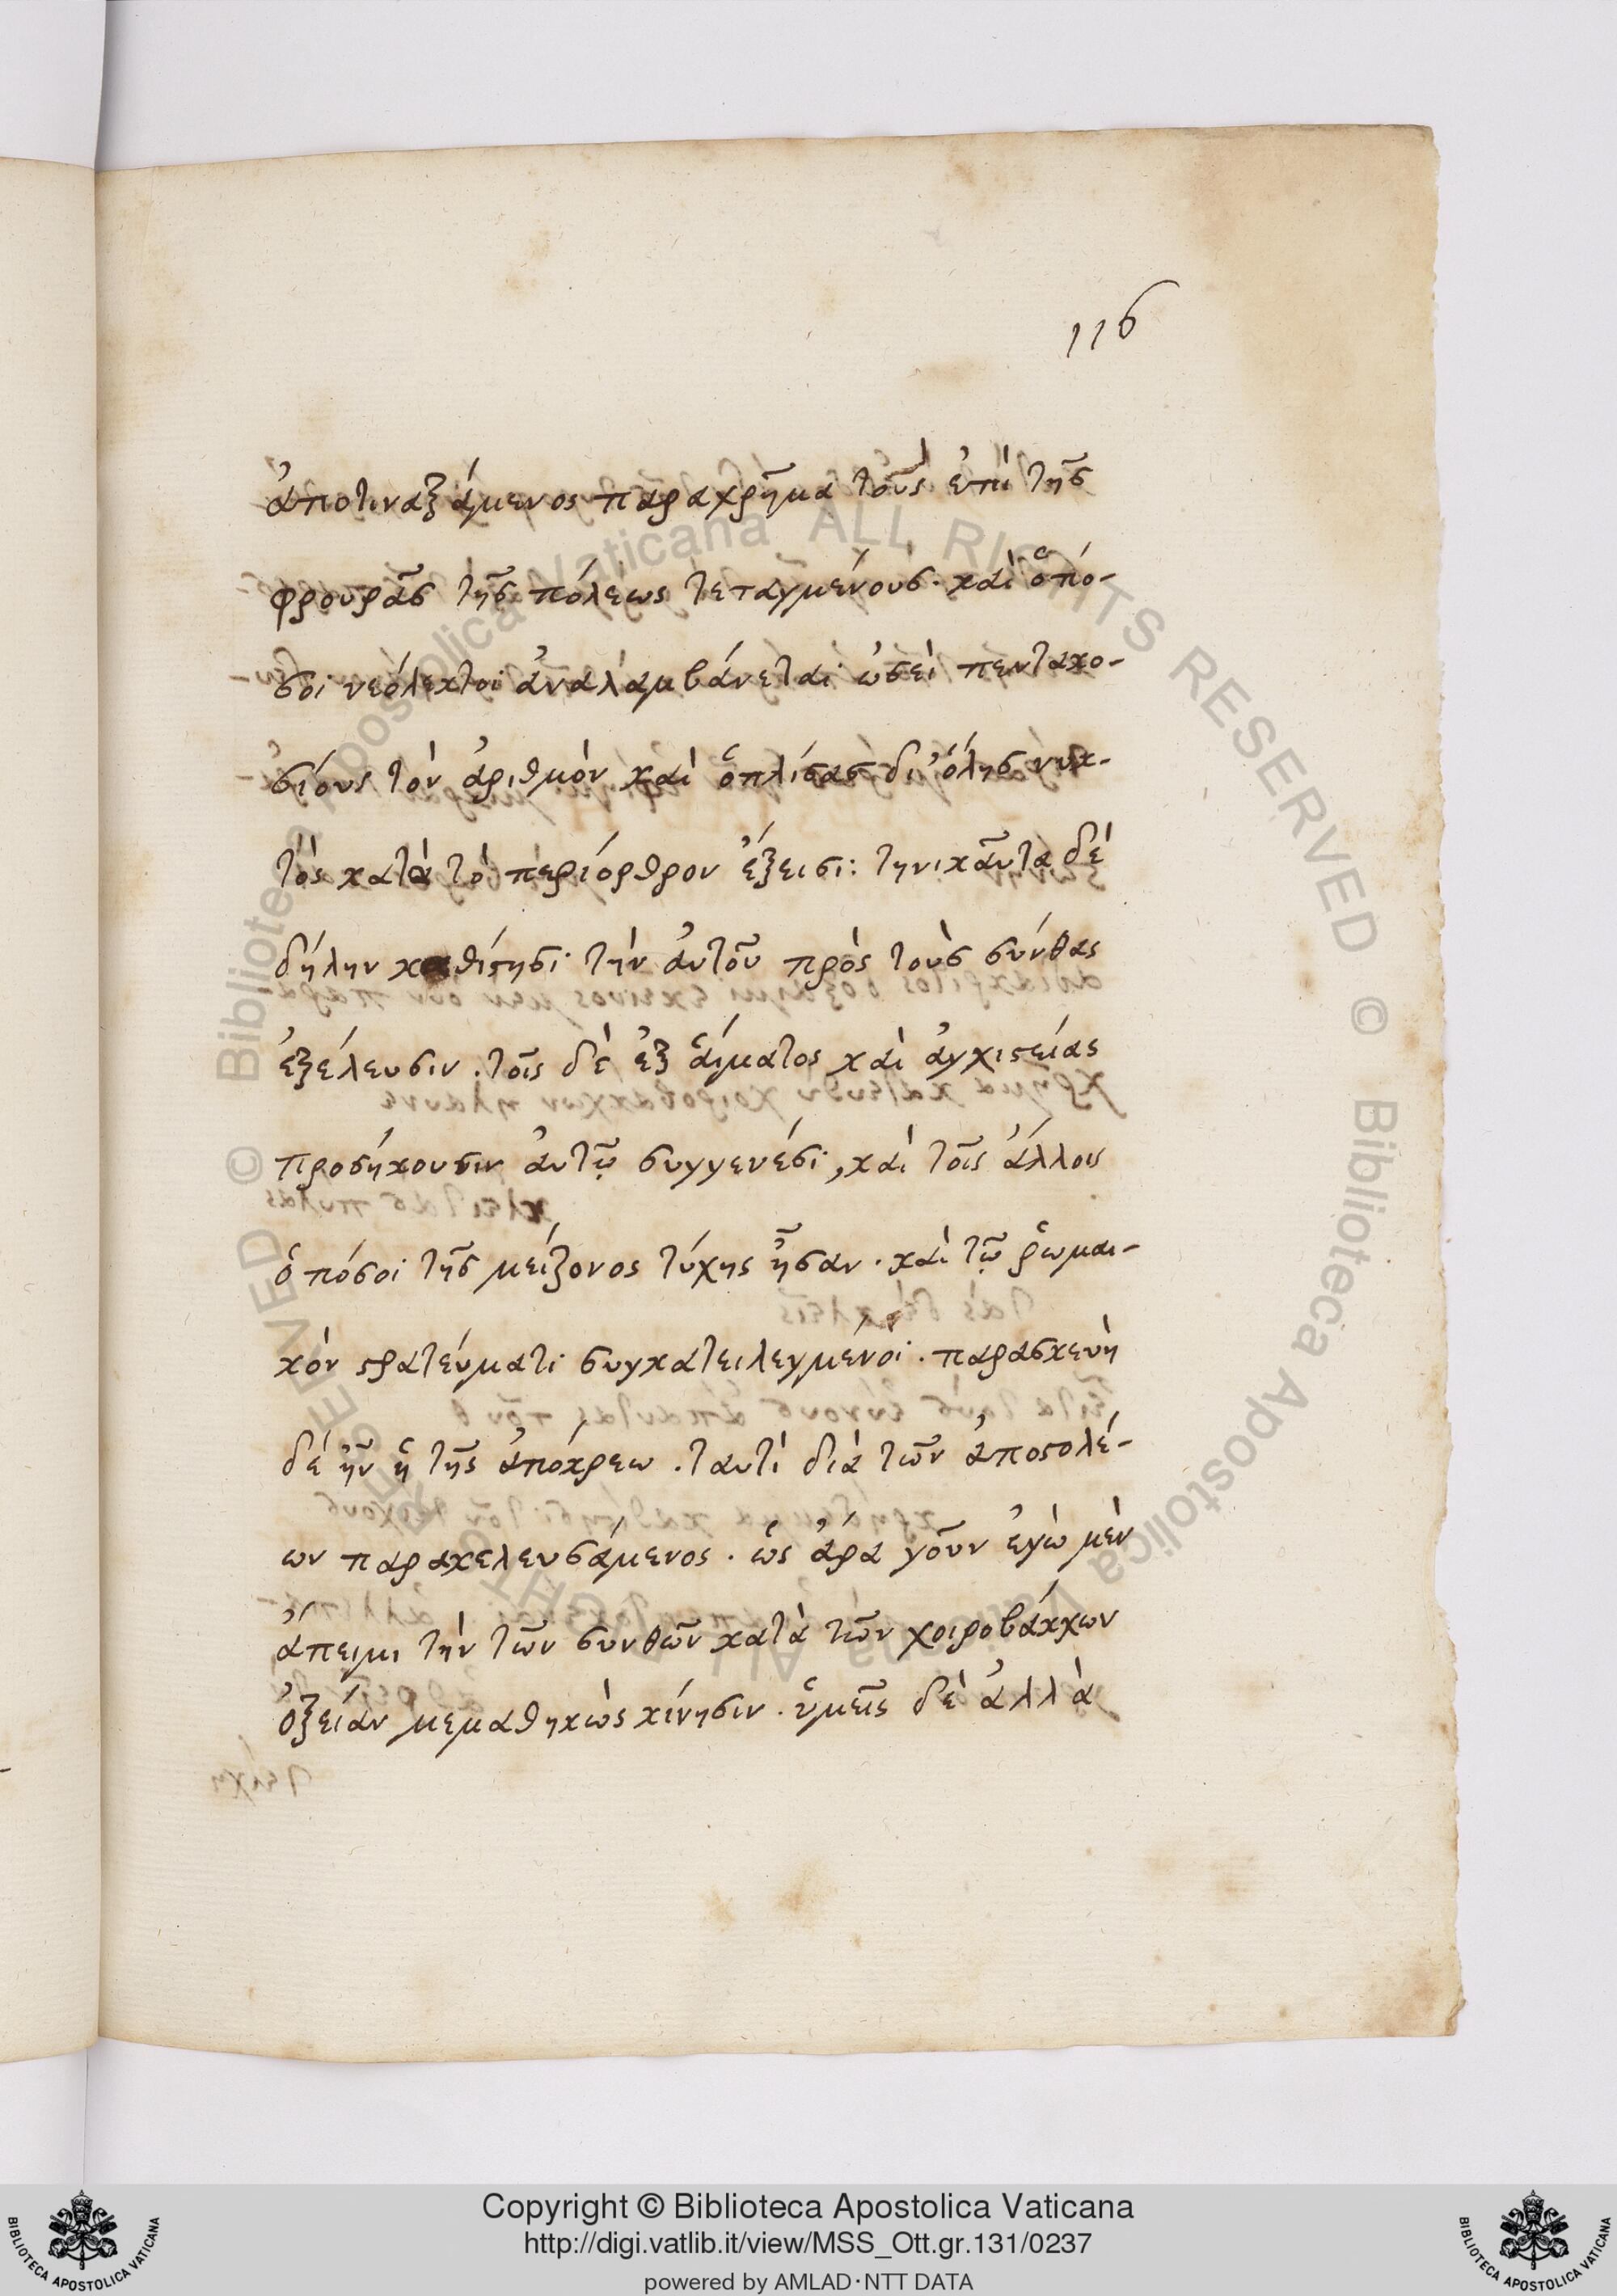 116
ἀποτιναξάμενος παραχρῆμα τοὺς ἐπὶ τῆς
φρουρᾶς τῆς πόλεως τεταγμένους· καὶ ὁπό-
σοι νεόλεκτοι ἀναλαμβάνεται ὡσεὶ πεντακο-
σίους τὸν ἀριθμὸν καὶ ὁπλίσας δι' ὅλης νυκ-
τὸς κατὰ τὸ περίορθρον ἔξεισι: τηνικαῦτα δὲ
δήλην καθίστησι τὴν ἀυτοῦ πρὸς τοὺς σκύθας
ἐξέλευσιν. τοῖς δὲ ἐξ ἅιματος καὶ ἀγχιστείας
προσήκουσιν ἀυτῷ συγγενέσι, καὶ τοῖς ἄλλοις
ὁπόσοι τῆς μείζονος τύχης ἦσαν. καὶ τῷ ῥωμαι-
κὸν στρατεύματι συγκατειλεγμένοι. παρασκευὴ
δὲ ἦν ἡ τῆς ἀπόκρεω. ταυτὶ διὰ τῶν ἀποστολέ-
ων παρακελευσάμενος. ὡς ἄρα γοῦν ἐγὼ μὲν
ἄπειμι τὴν τῶν σκυθῶν κατὰ τῶν χοιροβάκχων
ὀξεῖαν μεμαθηκὼς κίνησιν. ὑμεῖς δὲ ἀλλὰ
Copyright © Biblioteca Apostolica Vaticana
http://digi.vatlib.it/view/MSS_Ott.gr.131/0237
powered by AMLAD·NTT DATA
BIBLIOTECA APOSTOLICA VATICANA
BIBLIOTECA APOSTOLICA VATICANA